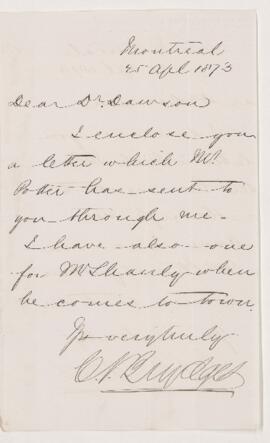 Montreal
25 Apl 1873
Dear Dr. Dawson
I enclose you
a letter which Mr.
Potter has sent to
you through me -
I have also one
for Mr Shanly when
he comes to town.
Yrs very truly
C J Brydges